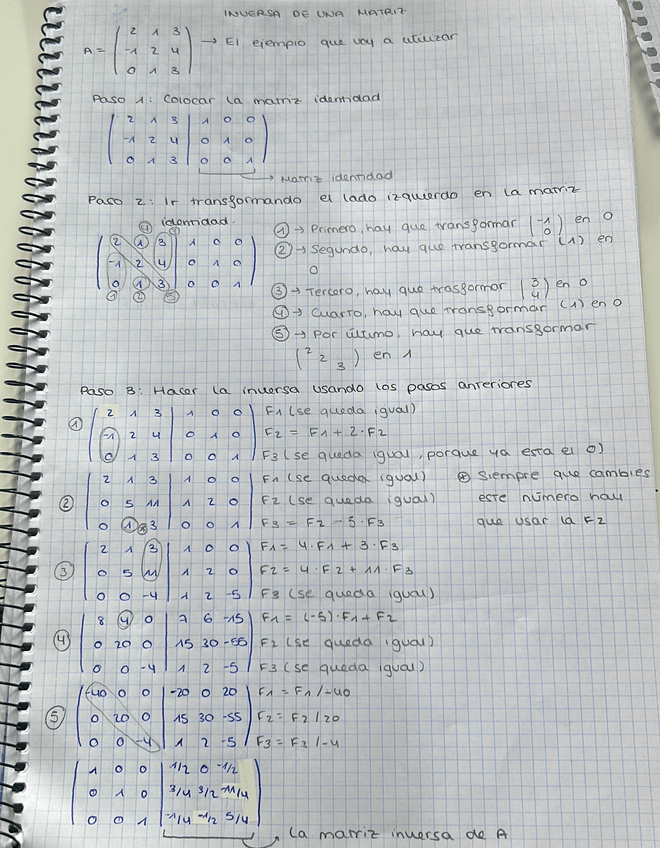 INVERSA DE UNA MATRIZ
A = ( 2 1 3 → El ejemplo que voy a utilizar
-1 2 4
0 1 3 )
Paso 1: Colocar la matriz identidad
( 2 1 3 | 1 0 0
-1 2 4 | 0 1 0
0 1 3 | 0 0 1 )
→ Matriz identidad
Paso 2: Ir transformando el lado izquierdo en la matriz
identidad.
④ ③
( 2 1 3 | 1 0 0
-1 2 4 | 0 1 0
0 1 3 | 0 0 1 )
① ② ⑤
① → Primero, hay que transformar ( -1 0 ) en 0
② → Segundo, hay que transformar (1) en
0
③ → Tercero, hay que trasformar ( 3 4 ) en 0
④ → Cuarto, hay que transformar (1) en 0
⑤ → Por último, hay que transformar
( 2 2 3 ) en 1
Paso 3: Hacer la inversa usando los pasos anteriores
① ( 2 1 3 | 1 0 0 ) F1 (se queda igual)
-1 2 4 | 0 1 0 F2 = F1 + 2·F2
0 1 3 | 0 0 1 F3 (se queda igual, porque ya esta el 0)
② 2 1 3 | 1 0 0 F1 (se queda igual) ⊛ Siempre que cambies
0 5 11 | 1 2 0 F2 (se queda igual) este número hay
0 1⊛ 3 | 0 0 1 F3 = F2 - 5·F3 que usar la F2
③ 2 1 3 | 1 0 0 F1 = 4·F1 + 3·F3
0 5 11 | 1 2 0 F2 = 4·F2 + 11·F3
0 0 -4 | 1 2 -5 F3 (se queda igual)
④ 8 4 0 | 7 6 -15 F1 = (-5)·F1 + F2
0 20 0 | 15 30 -55 F2 (se queda igual)
0 0 -4 | 1 2 -5 F3 (se queda igual)
⑤ -40 0 0 | -20 0 20 F1 = F1 / -40
0 20 0 | 15 30 -55 F2 = F2 / 20
0 0 -4 | 1 2 -5 F3 = F3 / -4
1 0 0 | 1/2 0 -1/2
0 1 0 | 3/4 3/2 -11/4
0 0 1 | -1/4 -1/2 5/4
→ La matriz inversa de A